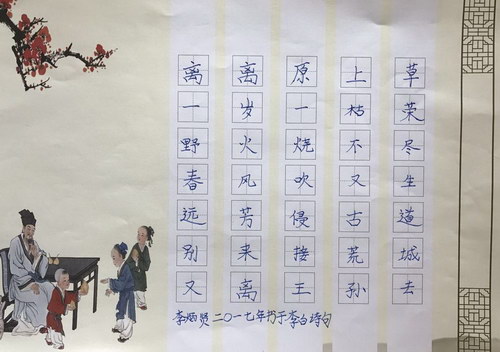 离离原上草
一岁一枯荣
野火烧不尽
春风吹又生
远芳侵古道
别来接荒城
又离王孙去
李炳贤二〇一七年书于李白诗句